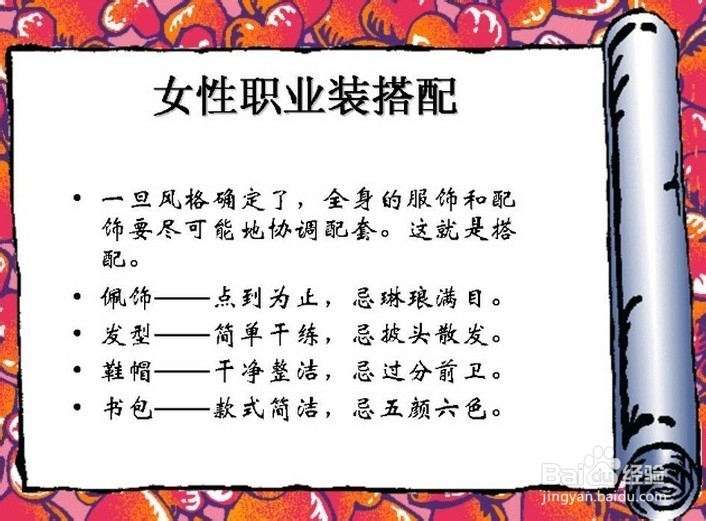 女性职业装搭配
• 一旦风格确定了，全身的服饰和配
饰要尽可能地协调配套。这就是搭
配。
• 佩饰——点到为止，忌琳琅满目。
• 发型——简单干练，忌披头散发。
• 鞋帽——干净整洁，忌过分前卫。
• 书包——款式简洁，忌五颜六色。
Baidu 经验
jingyan.baidu.com